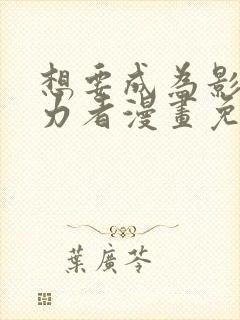 想要成為影
力者漫畫免
葉廣芩